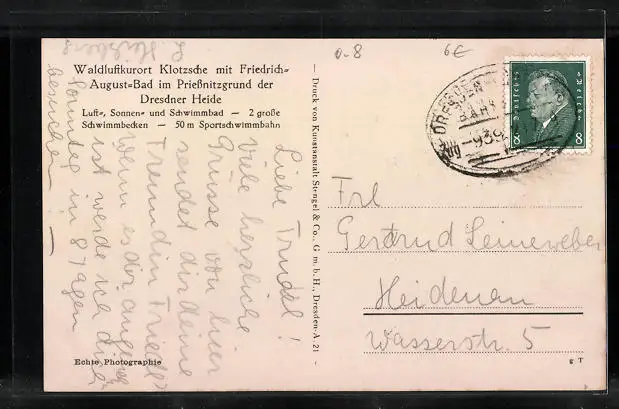 o-8
6€
Waldluftkurort Klotzsche mit Friedrich-
August-Bad im Prießnitzgrund der
Dresdner Heide
Luft-, Sonnen- und Schwimmbad — 2 große
Schwimmbecken — 50 m Sportschwimmbahn
Liebe Trudel!
Viele herzliche
Grüsse von hier
sendet dir deine
Freundin Friedel
wenn es dir angenehm
ist werde ich dich
Sonntag in 8 Tagen
besuchen
Echte Photographie
— Druck von Kunstanstalt Stengel & Co., G. m. b. H., Dresden-A. 21 -
DRESDEN
BAHN
Zug
939
Deutsches Reich
8 8
Frl
Gertrud Leineweber
Heidenau
Wasserstr. 5
g T